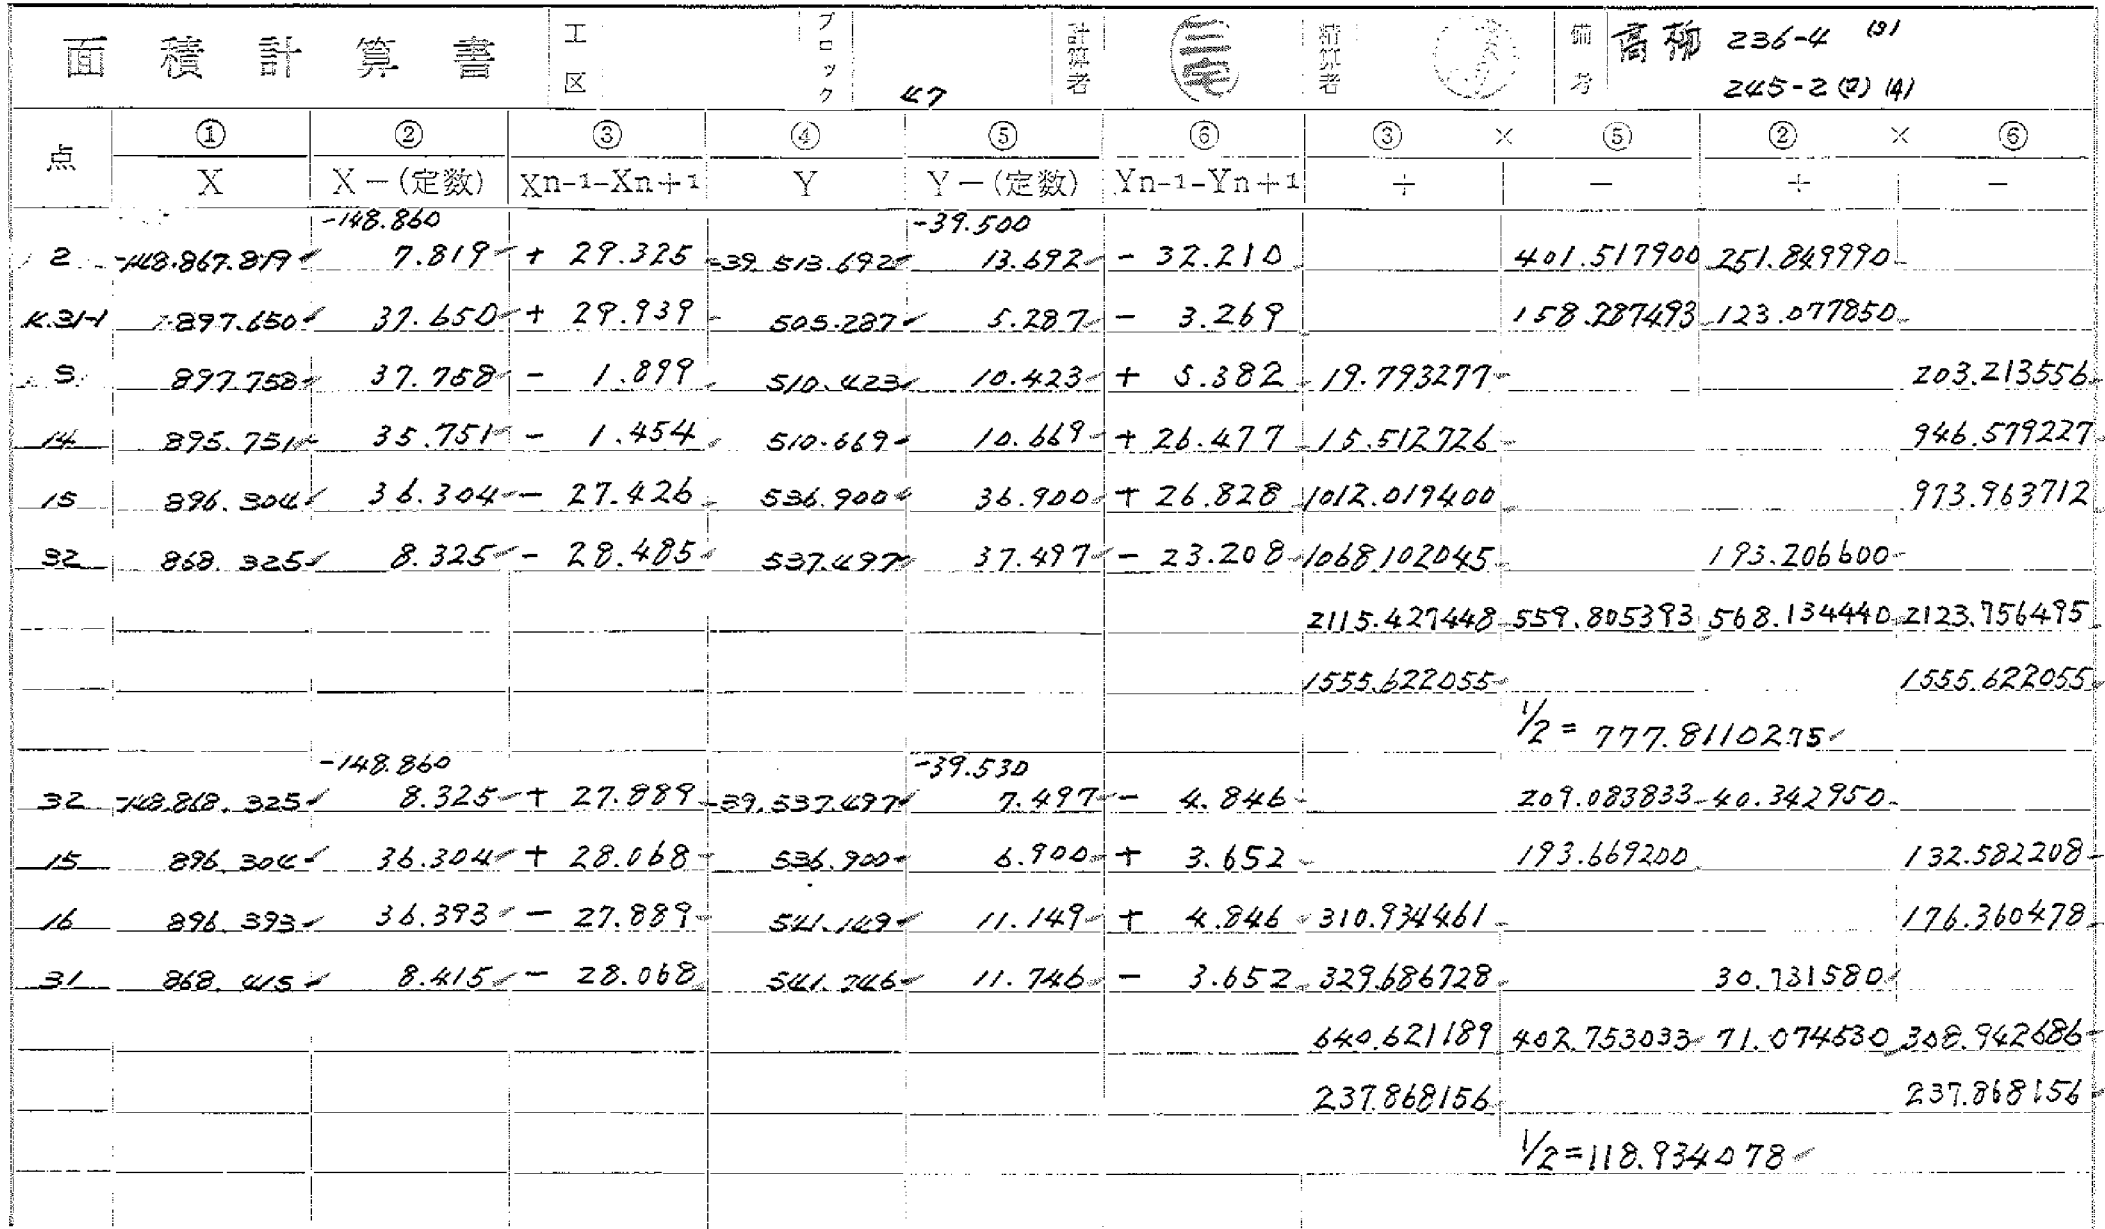 面積計算書 工区 ブロック 47 計算者 三宅 精算者 備考 高柳 236-4 (3)
245-2 (2) (4)
点 ① ② ③ ④ ⑤ ⑥ ③ × ⑤ ② × ⑥
X X−(定数) Xn-1-Xn+1 Y Y−(定数) Yn-1-Yn+1 + − + −
-148.860 -39.500
2 -148.867.819 7.819 + 29.325 -39.513.692 13.692 - 32.210 401.517900 251.849990
K.31-1 897.650 37.650 + 29.939 505.287 5.287 - 3.269 158.287493 123.077850
S 897.758 37.758 - 1.899 510.423 10.423 + 5.382 19.793277 203.213556
14 895.751 35.751 - 1.454 510.669 10.669 + 26.477 15.512726 946.579227
15 896.304 36.304 - 27.426 536.900 36.900 + 26.828 1012.019400 973.963712
32 868.325 8.325 - 28.485 537.497 37.497 - 23.208 1068.102045 193.206600
2115.427448 559.805393 568.134440 2123.756495
1555.622055 1555.622055
1/2 = 777.8110275
-148.860 -39.530
32 -148.868.325 8.325 + 27.889 -39.537.497 7.497 - 4.846 209.083833 40.342950
15 896.304 36.304 + 28.068 536.900 6.900 + 3.652 193.669200 132.582208
16 896.393 36.393 - 27.889 541.149 11.149 + 4.846 310.934461 176.360478
31 868.415 8.415 - 28.068 541.746 11.746 - 3.652 329.686728 30.731580
640.621189 402.753033 71.074530 308.942686
237.868156 237.868156
1/2=118.934078